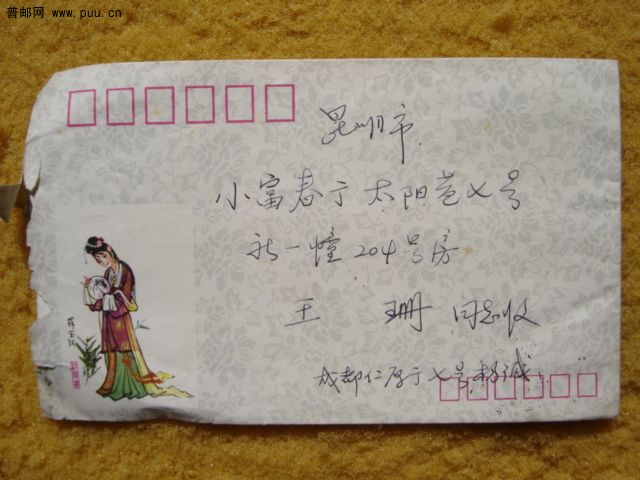 普邮网 www.puu.cn
昆明市
小富春亍太阳巷七号
新一幢204号房
王 珊 同志收
成都仁厚亍七号杨诚
薛宝钗